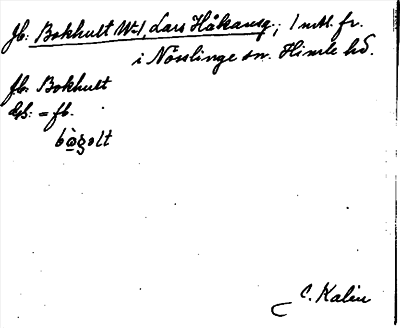 Jb. Bokhult No 1, Lars Håkansg.; 1 mtl. fr.
i Nösslinge sn. Himle hd.
fb. Bokhult
dsb: = fb.
bògolt
C. Kalén